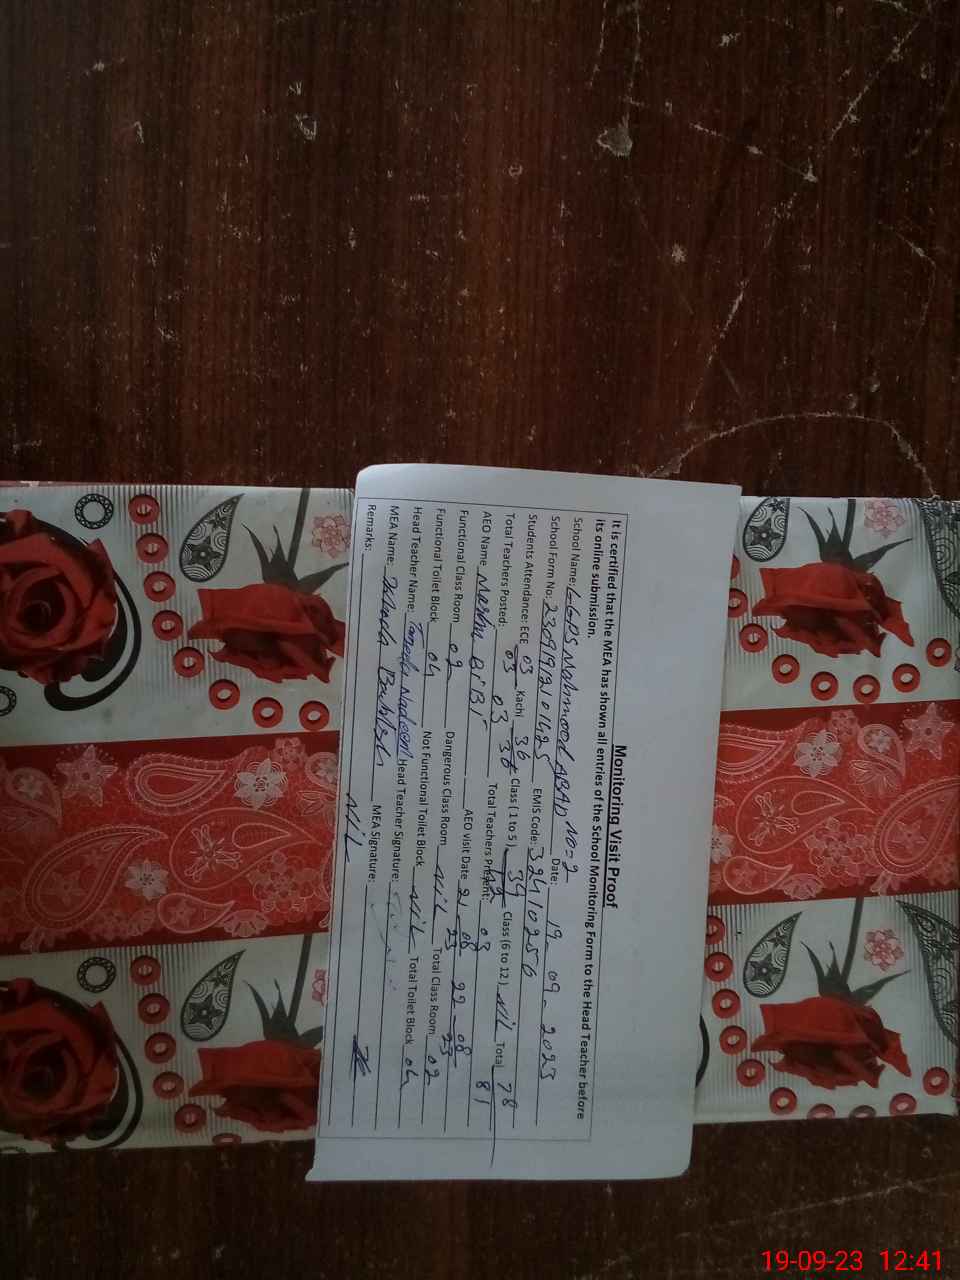 Monitoring Visit Proof
It is certified that the MEA has shown all entries of the School Monitoring Form to the Head Teacher before
its online submission.
School Name: GGPS Mahmood ABAD NO=2 Date: 19-09-2023
School Form No: 23091912101425 EMIS Code: 32410256
Students Attendance: ECE 03 Kachi 36 Class (1 to 5) 34 Class (6 to 12) Nil Total 78
Total Teachers Posted: 03 03 38 81
AEO Name BiBi Total Teachers Present: 03
Functional Class Room 02 AEO visit Date 21-08-23 22-08-23
Functional Toilet Block 04 Dangerous Class Room Nil Total Class Room 02
Head Teacher Name: Nadeem Not Functional Toilet Block Nil Total Toilet Block 04
MEA Name: Head Teacher Signature:
Remarks: MEA Signature:
Nil
19-09-23 12:41